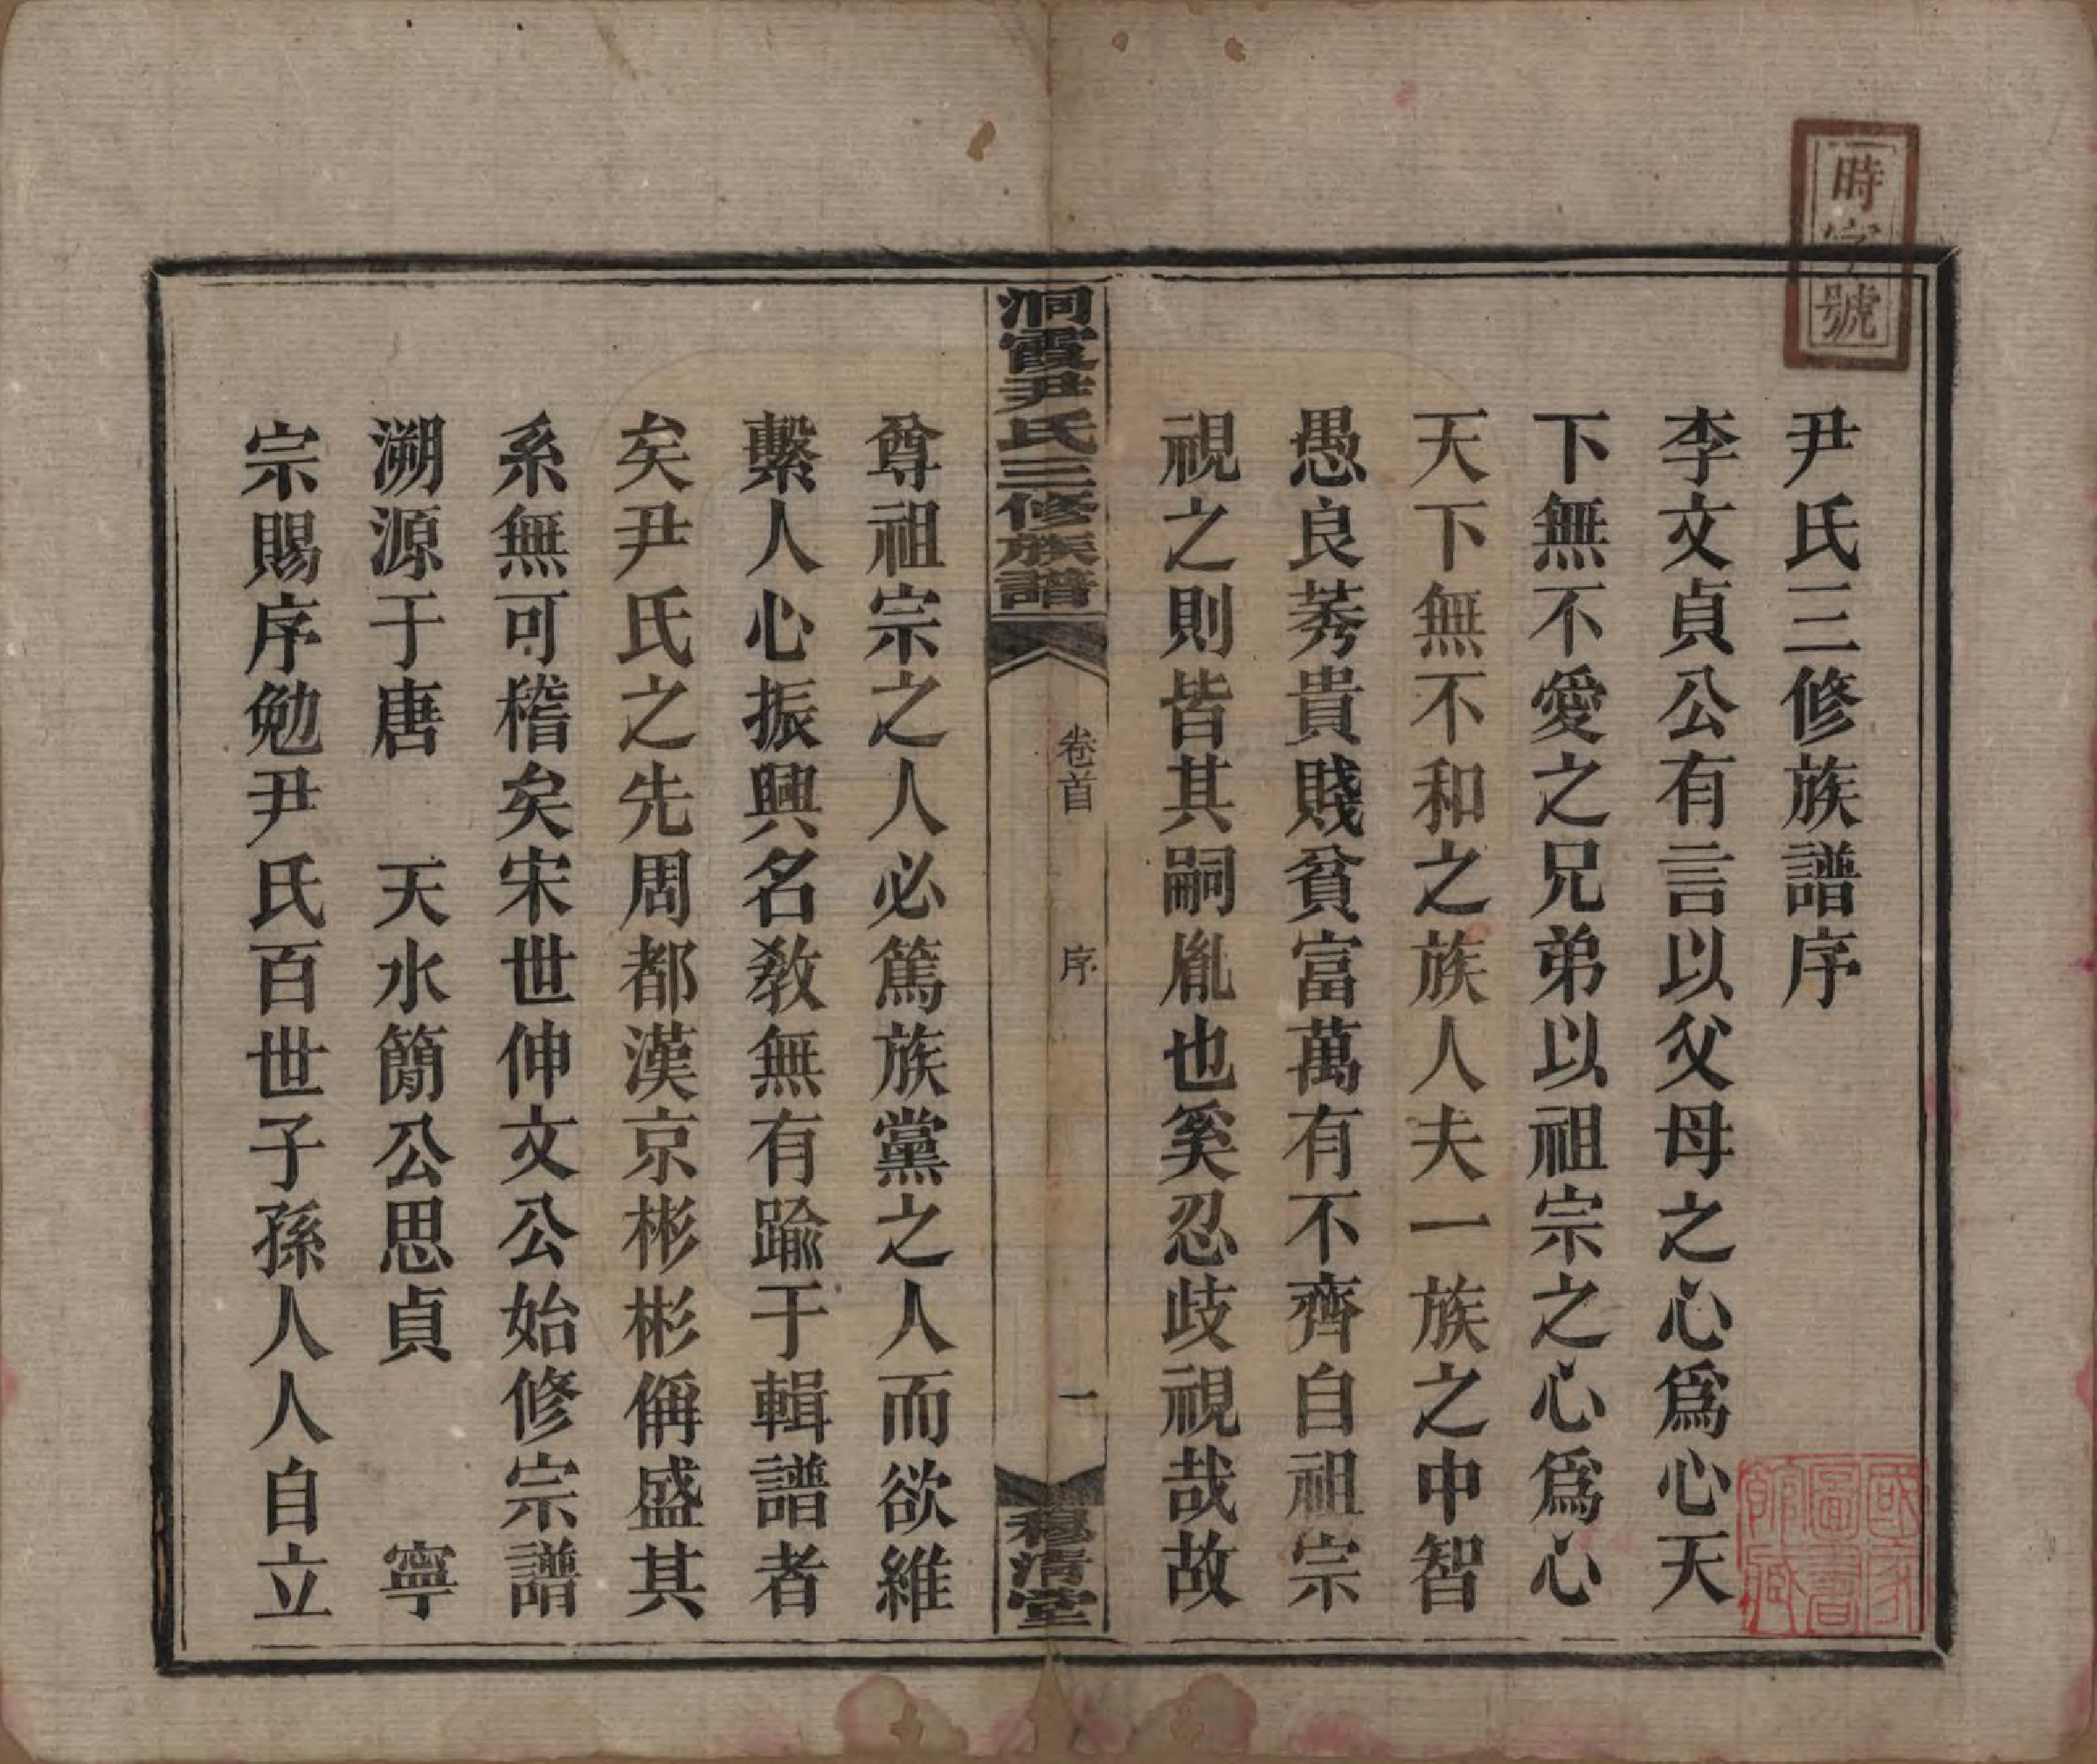 時字號
尹氏三修族譜序
李文貞公有言以父母之心爲心天
下無不愛之兄弟以祖宗之心爲心
天下無不和之族人夫一族之中智
愚良莠貴賤貧富萬有不齊自祖宗
視之則皆其嗣胤也奚忍歧視哉故
國家圖書館藏
洞霞尹氏三修族譜
卷首
序
一
穆清堂
尊祖宗之人必篤族黨之人而欲維
繫人心振興名教無有踰于輯譜者
矣尹氏之先周都漢京彬彬偁盛其
系無可稽矣宋世伸文公始修宗譜
溯源于唐 天水簡公思貞 寧
宗賜序勉尹氏百世子孫人人自立